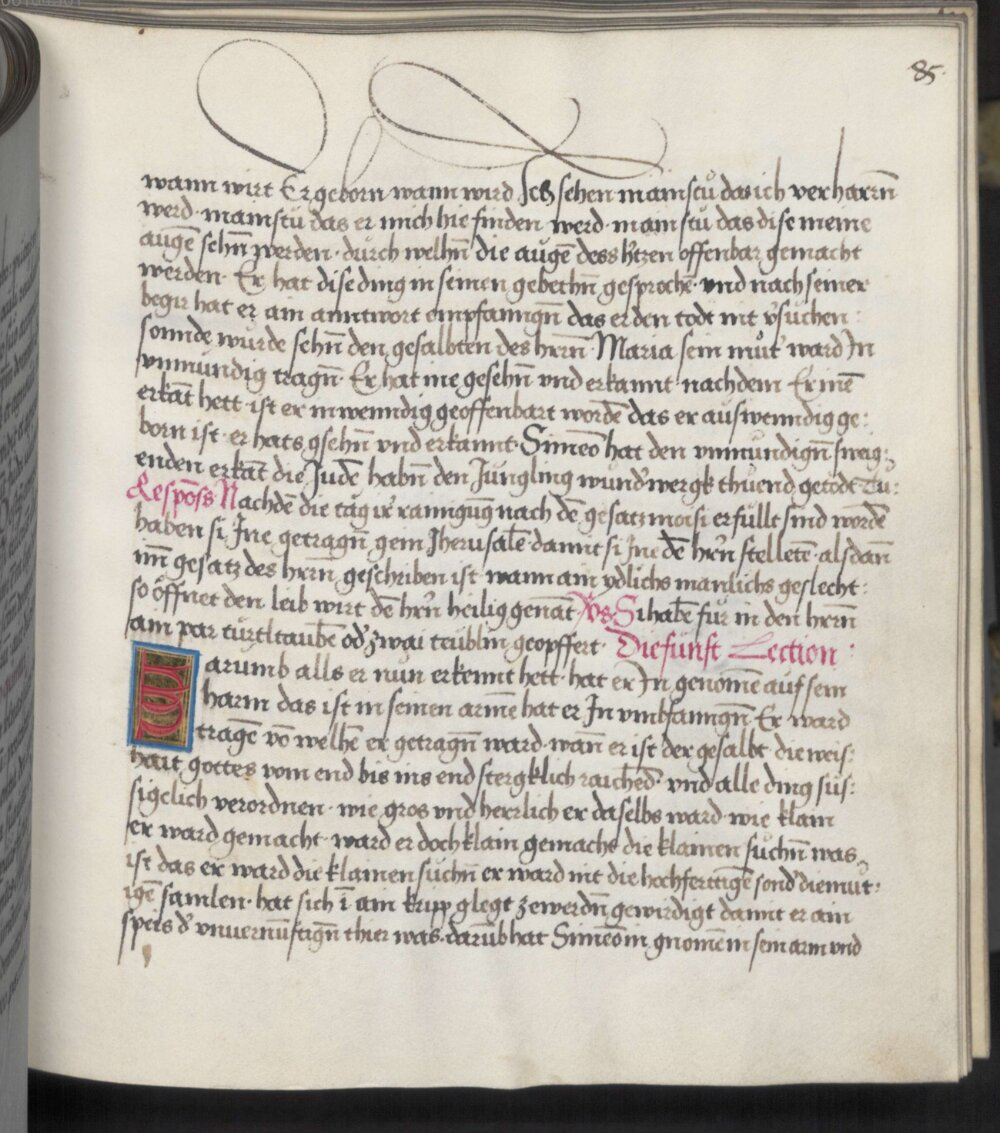 85.
wann wirt Er geborn wann wird Ich sehen mainstu das ich verharrn̄
werd · mainstu das er mich hie finden werd · mainstu das dise meine
augē sehn̄ werden · durch welhn̄ die augē dess htzen offenbar gemacht
werden · Er hat dise ding in seinen gebethn̄ gesprochē · vnd nach seiner
begir hat er ain anntwort empfanngn̄ das er den todt nit v̓suchen :
sonnde wurde sehn̄ den gesalbten des hrrn̄ Maria sein mut̓ ward In
vnmundig tragn̄ · Er hat ine gesehn̄ vnd erkannt · nachdem Er inē
erkāt hett · ist er inwenndig geoffenbart wordē das er auswenndig ge:
born ist · er hats gsehn̄ vnd erkannt · Simeō hat den vnmundign̄ sweig:
enden erkāt die Judē habn̄ den Jungling wund̓wergk thuend getodt Tu:
Respōss Nachdē die tag ir̓ rainigūg nach dē gesatz moisi erfullt sind wordē
haben si Ine getragn̄ gein Jherusalē · damit si Ine dē hrr̄n stelletē · als dān
im̄ gesatz des hrrn̄ geschriben ist wann ain ydlichs manlichs geslecht :
so öffnet den leib wirt dē hrr̄n heilig genāt V̓s Si habē fur in den hrrn̄
ain par turtltaubē od̓ zwai taublin geopffert · Die funft Lection :
Warumb alls er nun erkennt hett · hat er In genomē auf sein
harm das ist in seinen armē hat er In vmbfanngn̄ · Er ward
tragē vō welhē er getragn̄ ward · wān er ist der gesalbt die weis:
hait gottes vom end bis ins end stergklich raichēd vnd alle ding sus:
sigclich verordnen · wie gros vnd herrlich er daselbs ward · wie klain
er ward gemacht · ward er doch klain gemacht die klainen suchn̄ was
ist das er ward die klainen suchn̄ er ward nit die hochferttigē sond̓ diemut:
igē samlen · hat sich ī ain kripp glegt zewerdn̄ gewirdigt damit er ain
speis d̓ vnuernunftign̄ thier was · darūb hat Simeō in gnomē in sein arm vnd